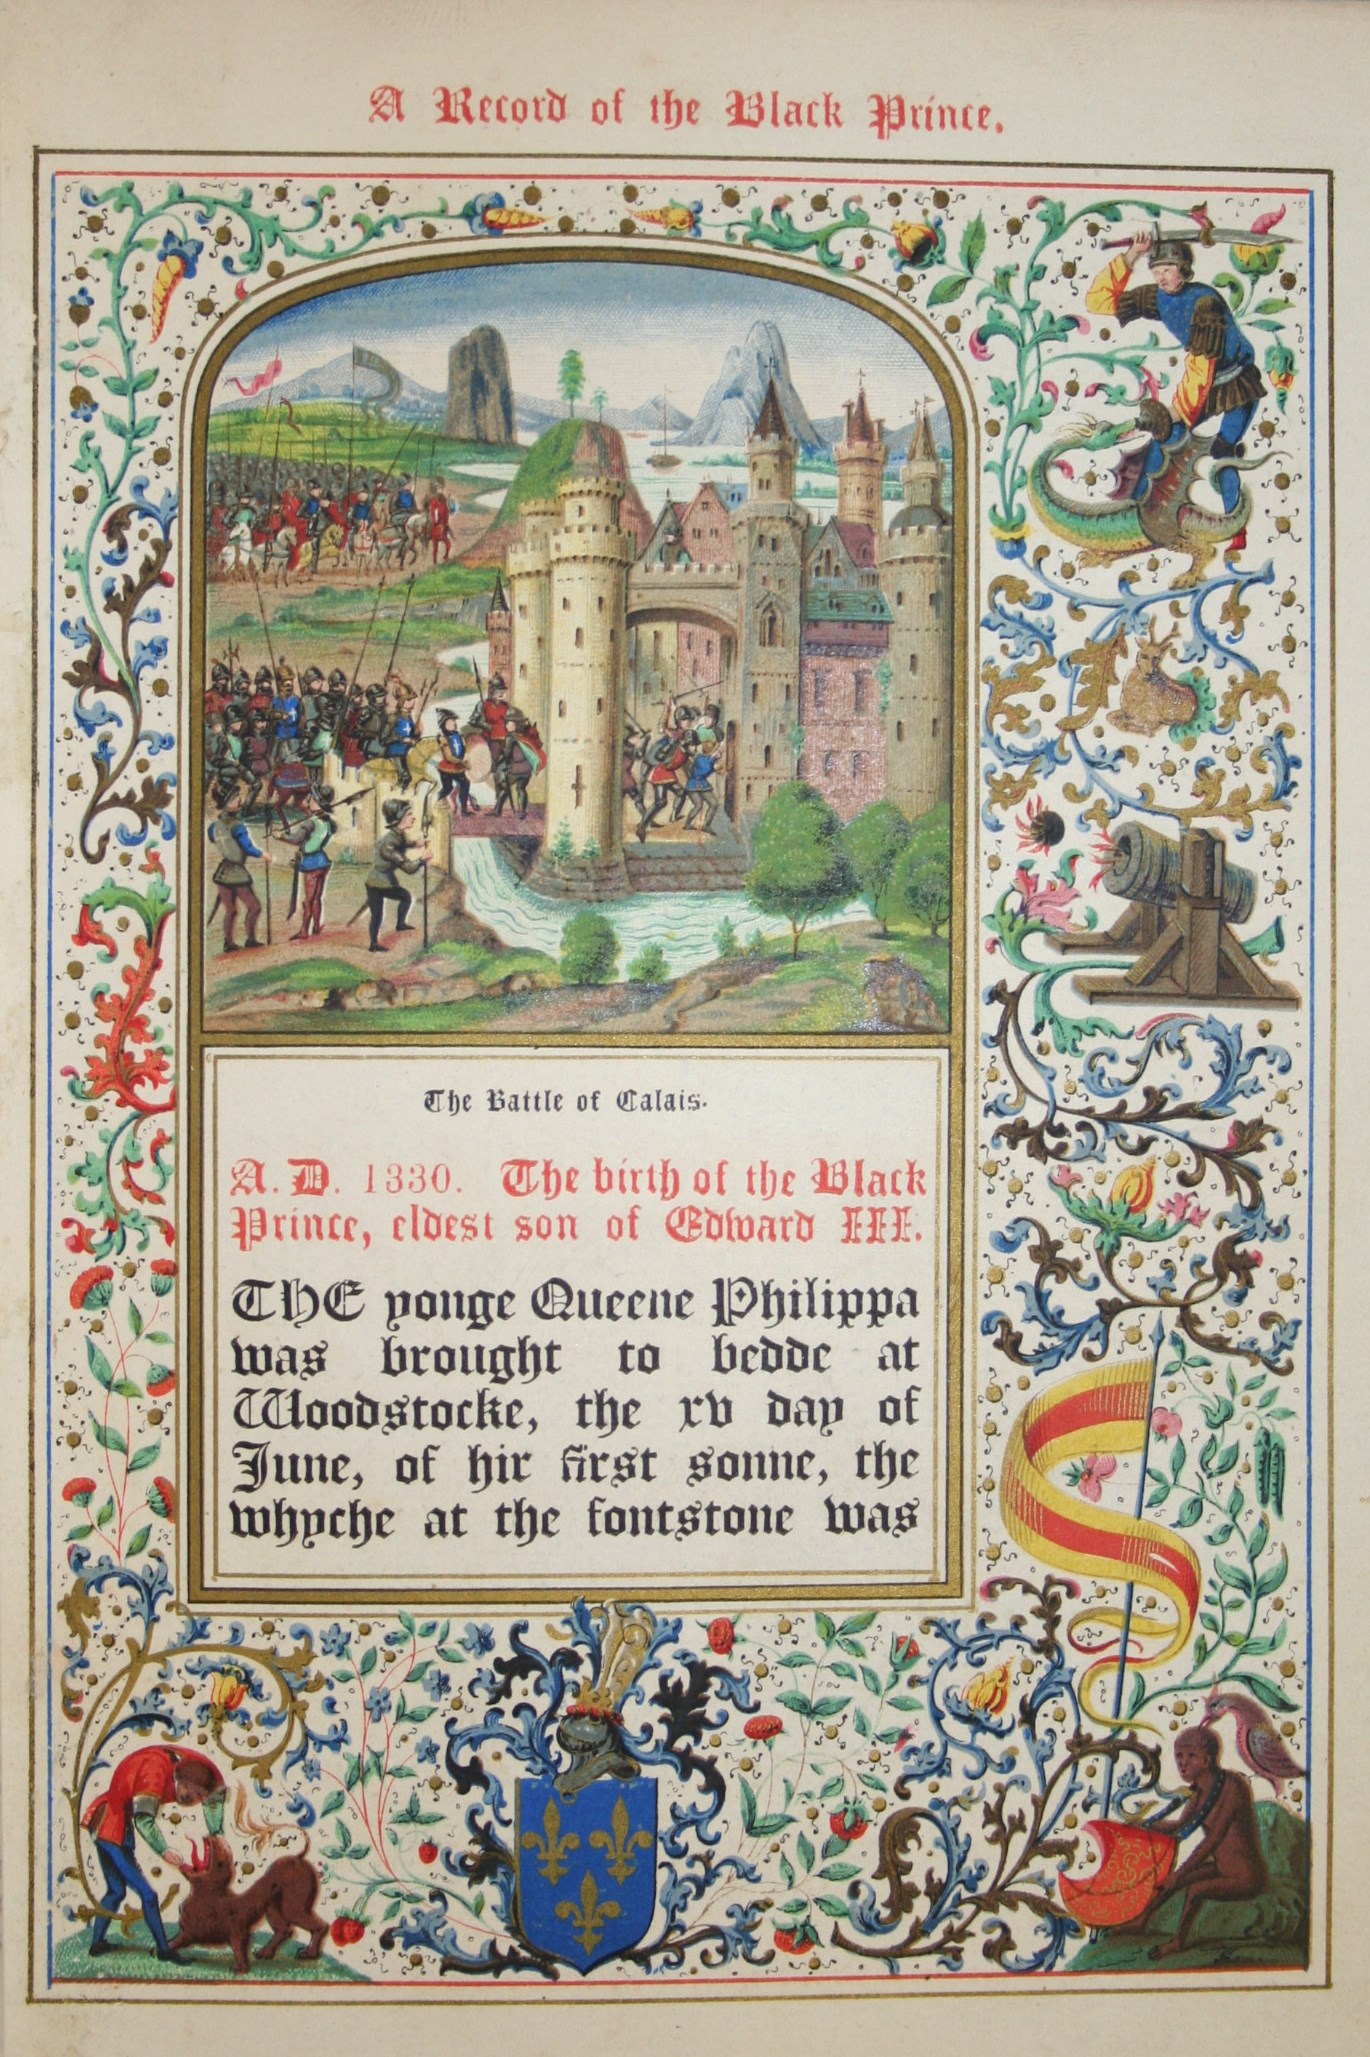 A Record of the Black Prince.
The Battle of Calais.
A.D. 1330. The birth of the Black
Prince, eldest son of Edward III.
THE yonge Queene Philippa
was brought to bedde at
Woodstocke, the xv day of
June, of hir first sonne, the
whyche at the fontstone was